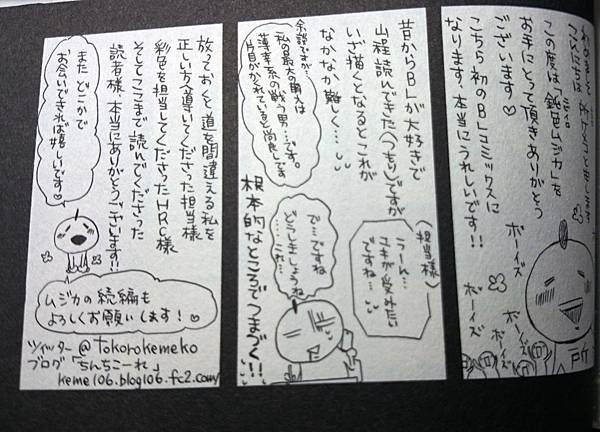 こんにちは
この度は「錆色ムジカ」を
お手にとって頂きありがとう
ございます♡
こちら初のBLコミックスに
なります。本当にうれしいです!!
ボーイズ
ボーイズ
ボーイズ
ボーイズ
所
昔からBLが大好きで
山程読んできた(つもり)ですが
いざ描くとなるとこれが
なかなか難しく…
余談ですが…
私の最大の萌えは
薄幸系の戦う男…です。
片目がかくれていると尚良しです
(担当様)
うーん…
ユキが受れたい
ですね…
で…ですね
どうしましょうね
…これ…
根本的なところでつまづく!!
放っておくと道を間違える私を
正しい方へ導いてくださった担当様
彩色を担当してくださったHRC様
そしてここまで読んでくださった
読者様、本当にありがとうございます!!
また どこかで
お会いできれば嬉しいです♡
ムジカの続編も
よろしくお願いします!♡
ツイッター@Tokorokemeko
ブログ「ちんちこーれ」
keme106.blog106.fc2.com/